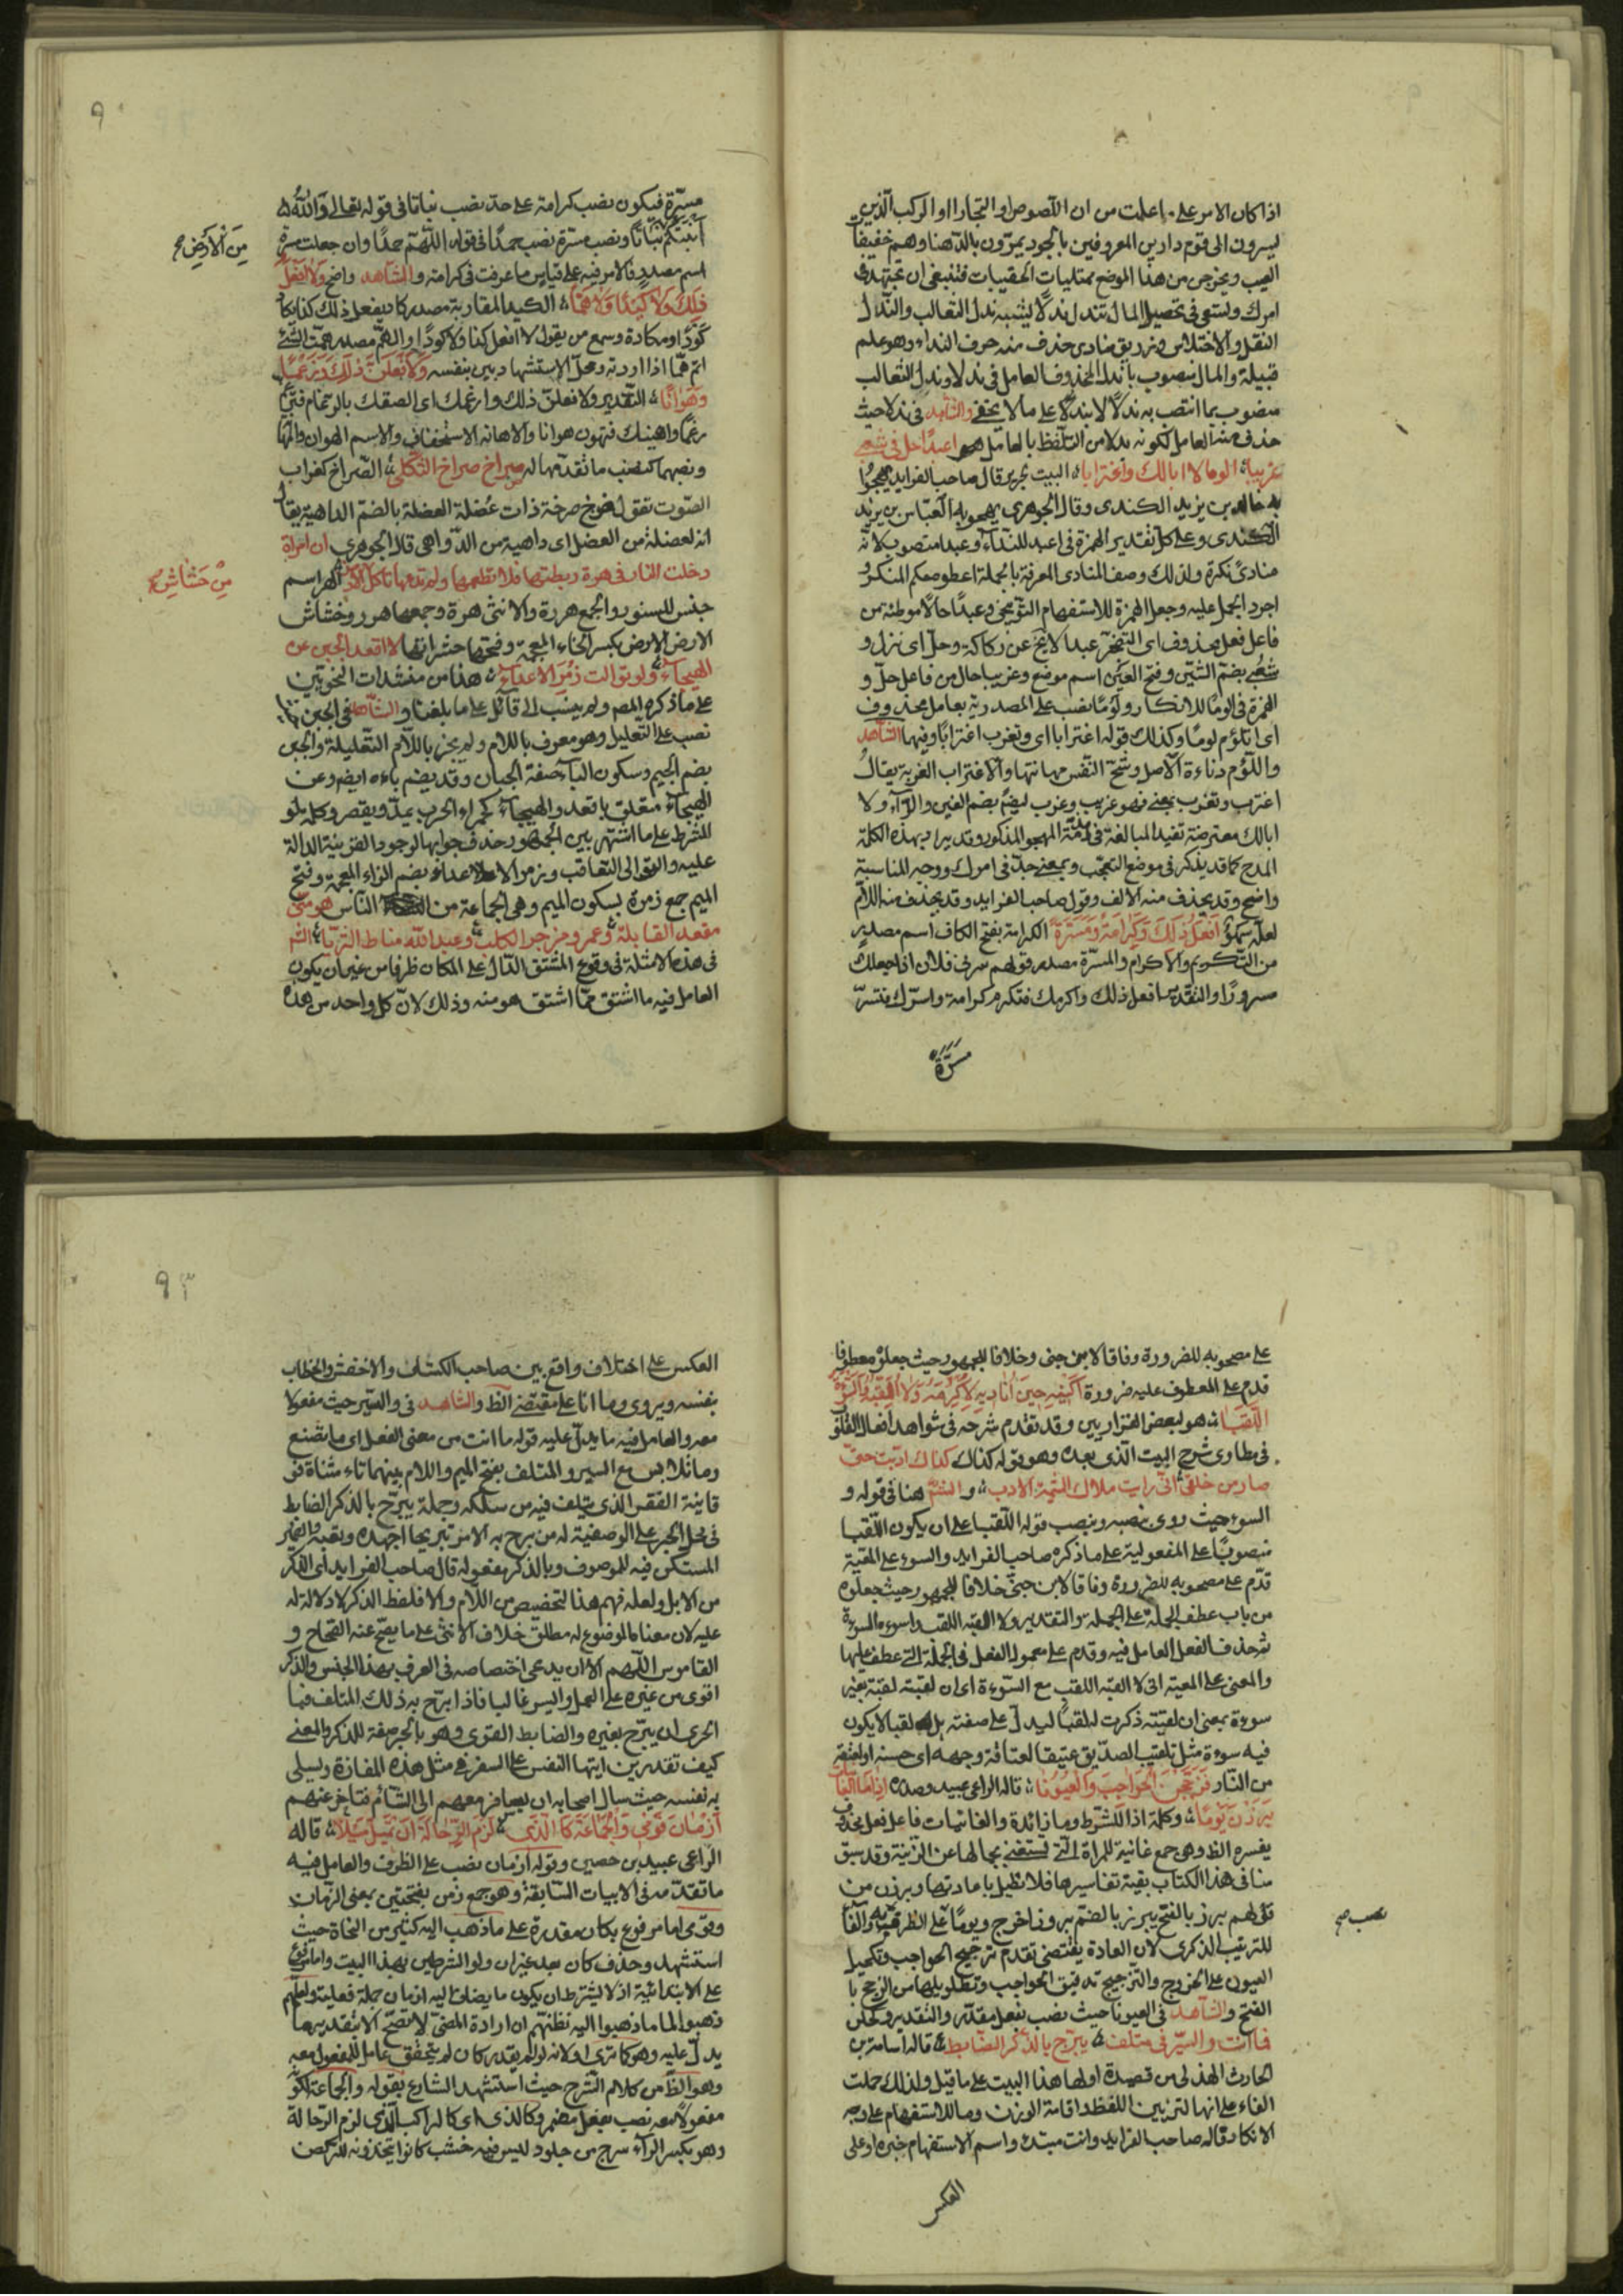 اذا كان الامر على ما علمت من ان اللصوص او التجار او الركب الذين
يسرون الى قوم دارين المعروفين بالجود يمرّون بالدّهنا وهم خفيفا
العيب ويخرجن من هذا الموضع ممتليات الحقيبات فينبغى ان تجتهد فى
امرك وتسعى فى تحصيل المال تندل ندلًا يشبه ندل الثعالب والنّدل
النقل والاختلاس وزريق منادى حذف منه حرف النداء وهو علم
قبيلة والمال منصوب بالندل المحذوف العامل فى ندلا وندل الثعالب
منصوب بما انتصب به ندلًا لا بندلًا على ما لا يخفى والشاهد فى ندلا حيث
حذف منه العامل لكونه بدلا من التلفظ بالعامل اعبدًا حل فى شعبى
غريبا الوما لا ابا لك واغترابا البيت لجرير قال صاحب الفرايد يهجوا
به خالد بن يزيد الكندى وقال الجوهرى يهجو به العبّاس بن يزيد
الكندى وعلى كل تقدير الهمزة فى اعبد للنداء وعبدا منصوب لانه
منادى نكرة ولذلك وصف المنادى المعرفة بالجملة اعطوه حكم المنكر و
اجرد الجمل عليه وجعل الهمزة للاستفهام التوبيخى وعبدًا حالًا موطئة من
فاعل فعل محذوف اى اتفتخر عبدا لا يخ عن ركاكة وحل اى نزل و
شعبى بضم الشين وفتح العين اسم موضع وغريبا حال من فاعل حلّ و
الهمزة فى الومًا للانكار ولومًا نصب على المصدرية بعامل محذوف
اى اتلؤم لومًا وكذلك قوله اغترابا اى وتغرب اغترابًا وفيهما الشاهد
واللؤم دناءة الاصل وشحّ النفس مهانتها والاغتراب الغربة يقال
اغترب وتغرب بمعنى فهو غريب وغرب ايضًا بضم الغين والراء ولا
ابا لك معترضة تفيد المبالغة فى مذمّة المهجو المذكور وقد يراد بهذه الكلمة
المدح كما قد يذكر فى موضع التعجّب وبمعنى جدّ فى امرك ووجه المناسبة
واضح وقد يحذف منه الالف وقول صاحب الفرايد وقد يحذف منه اللام
لعلّه سهوٌ افعل ذلك وكرامةً ومسرّةً الكرامة بفتح الكاف اسم مصدر
من التكريم والاكرام والمسرّة مصدر قولهم سرنى فلان اذا جعلك
مسرورًا والتقدير افعل ذلك واكرمك فتكرم كرامة واسرّك فتسرّ
مسرّةً
مسرّة فيكون نصب كرامة على حدّ نصب نباتا فى قوله تعالى والله
انبتكم نباتًا ونصب مسرّة نصب حمدًا فى قوله اللهم حمدًا وان جعلت مسرّة
من الارض صح
اسم مصدر فالامر فيه على قياس ما عرفت فى كرامة والشاهد واضح ولا افعل
ذلك ولا كيدًا ولا همًّا الكيد المقاربة مصدر كاد يفعل ذلك كذا يكاد
كودًا ومكادة وسمع من يقول لا افعل كذا ولا كودًا والهمّ مصدر هممت الشئ
اهم همّا اذا اردته ومحل الاستشهاد بين بنفسه ولا فعلنّ ذلك ورغمًا
وهوانًا التقدير ولا فعلن ذلك وارغمك اى الصقك بالرغام فترغم
رغمًا واهينك فتهون هوانا والاهانة الاستخفاف والاسم الهوان والمهانة
ونصبهما كنصب ما تقدّمهما له صراخ صراخ الثكلى الصّراخ كغراب
الصوت تقول صرخ صرخة ذات عُضلة العضلة بالضمّ الداهية يقال
انه لعضلة من العضل اى داهية من الدّواهى قاله الجوهرى ان امراة
دخلت النار فى هرة ربطتها فلا تطعمها ولم تدعها تاكل الهر اسم
من خشاش صح
جنس للسنور والجمع هررة والانثى هرة وجمعها هرر وخشاش
الارض بكسر الخاء المعجمة وفتحها حشراتها لا اقعد الجبن عن
الهيجاء ولو توالت زمر الاعداء هذا من منشدات النحويين
على ما ذكره المصـ ولم ينسب الى قائل على ما بلغنا والشاهد فى الجبن
نصب على التعليل وهو معرف باللام ولم يجز باللام التعليلة والجبن
بضم الجيم وسكون الباء صفة الجبان وقد يضم باءه ايضم وعن
الهيجاء متعلق باقعد والهيجاء كحمراء الحرب يمدّ ويقصر وكلمة لو
للشرط على ما اشتهر بين الجمهور حذف جوابها لوجود القرينة الدالة
عليه والتوالى التعاقب وزمر الاعداء بضم الزاء المعجمة وفتح
الميم جمع زمرة بسكون الميم وهى الجماعة من الناس هو منى
مقعد القابلة وعمرو مزجر الكلب وعبد الله مناط الثريا الشـ
فى هذه الامثلة فى وقوع المشتق الدال على المكان ظرفا من غير ان يكون
العامل فيه ما اشتق ممّا اشتق هو منه وذلك لان كل واحد من هذه
على مصحوبه للضرورة وفاقا لابن جنى وخلافا للجمهور حيث جعلوه معطوفا
قدم على المعطوف عليه ضرورة اكنيه حين اناديه لاكرمه ولا القبه والسوءة
اللقبا هو لبعض الفزاريين وقد تقدم شرحه فى شواهد افعال القلوب
فى مطاوى شرح البيت الذى بعده وهو قوله كذاك كذاك ادبت حتى
صار من خلقى انى رايت ملاك الشيمة الادب والشـ هنا فى قوله و
السوءة حيث روى بنصبه وينصب قوله اللقبا على ان يكون اللقبا
منصوبًا على المفعولية على ما ذكره صاحب الفرايد والسوءة على المعيّة
قدّم على مصحوبه للضرورة وفاقا لابن جنّى خلافا للجمهور حيث جعلوه
من باب عطف الجملة على الجملة والتقدير ولا القبه اللقب واسوءه السوءة
ثم حذف الفعل العامل فيه وقدم على معمول الفعل فى الجملة التى عطف عليها
والمعنى على المعية انى لا القبه اللقب مع السوءة اى ان لقبته لقبته بغير
سوءة بمعنى ان لقبته ذكرت له لقبًا ليدل على صفته بل لقبا لا يكون
فيه سوءة مثل تلقيب الصدّيق عتيقا لعتاقة وجهه اى حسنه او لعتقه
من النّار وزجّجن الحواجب والعيونا قاله الراعى عبيد وصدره اذا ما الغانيات
برزن يومًا وكلمة اذا للشرط وما زائدة والغانيات فاعل فعل محذوف
يفسره الظ وهى جمع غانية للمراة التى تستغنى بجمالها عن الزينة وقد سبق
منا فى هذا الكتاب بقية تفاسيرها فلا نطيل باعادتها وبرزن من
قولهم برز بالفتح يبرز بالضمّ بروزا خرج ويومًا على الظرفية والفاء
نصب صح
للترتيب الذكرى لان العادة يقتضى تقدم تزجيج الحواجب وتكحيل
العيون على الخروج والتزجيج تدقيق الحواجب وتطويلها من الزجج با
الفتح والشاهد فى العيونا حيث نصب بفعل مقدّر والتقدير وكحلن
فما انت والسّير فى متلف يبرّح بالذكر الضابط قاله اسامة بن
الحارث الهذلى من قصيدة اولها هذا البيت على ما قيل ولذلك حملت
الفاء على انها لتزيين اللفظ واقامة الوزن وما للاستفهام على وجه
الانكار قاله صاحب الفرايد وانت مبتدء واسم الاستفهام خبره او على
العكس
العكس على اختلاف واقع بين صاحب الكتاب والاخفش والخطاب
بنفسه ويروى وما انا على مقتضى الظ والشاهد فى والسّير حيث مفعولا
معه والعامل فيه ما يدلّ عليه قوله ما انت من معنى الفعل اى ما تصنع
وما تلابس مع السير والمتلف بفتح الميم واللام بينهما تاء مثناة فو
قانية القفر الذى يتلف فيه من سلكه وجملة يبرّح بالذكر الضابط
فى محل الجر على الوصفية له من برح به الامر تبريحا اجهده وتعبه والضمير
المستكن فيه للموصوف وبالذكر مفعوله قال صاحب الفرايد اى الذكر
من الابل ولعله فهم هذا لتخصيص من اللام والا فلفظ الذكر لا دلالة له
عليه لان معناه الموضوع له مطلق خلاف الانثى على ما يفصح عنه الصحاح و
القاموس اللّهم الا ان يدعى اختصاصه فى العرف بهذا الجنس والذكر
اقوى من غيره على الحمل والسير غالبا فاذا برّح به ذلك المتلف فما
احرى ان يبرّح بغيره والضابط القوى وهو بالجر صفة للذكر والمعنى
كيف تقدرين ايتها النفس على السفر فى مثل هذه المفازة ويسلى
به نفسه حيث سال اصحابه ان يسافر معهم الى الشام فتاخر عنهم
ازمان قومى والجماعة كالذى لزم الرّحالة ان تميل مميلا قاله
الراعى عبيد بن حصين وقوله ازمان نصب على الظرف والعامل فيه
ما تقدّمه فى الابيات السّابقة وهو جمع زمن بفتحتين بمعنى الزمان
وقومى اما مرفوع بكان مقدرة على ما ذهب اليه كثير من النحاة حيث
استشهد وحذف كان بعد غير ان ولو الشرطيين بهذا البيت واما مرفوع
على الابتدائية اذ لا يشترط ان يكون ما يضاف اليه ازمان جملة فعلية ولعلّهم
ذهبوا الى ما ذهبوا اليه نظنهم ان ارادة المضىّ لا تصحّ الا بتقديرهما
يدل عليه وهو كما ترى او لانه لو لم يقدر كان لم يتحقق عامل للمفعول معه
وهو الظ من كلام الشرح حيث استشهد الشارع بقوله والجماعة لكونه
مفعولا معه نصب بفعل مضمر وكالذى اى كالراكب الذى لزم الرّحالة
وهو بكسر الراء سرج من جلود ليس فيه خشب كانوا يتخذونه للركض